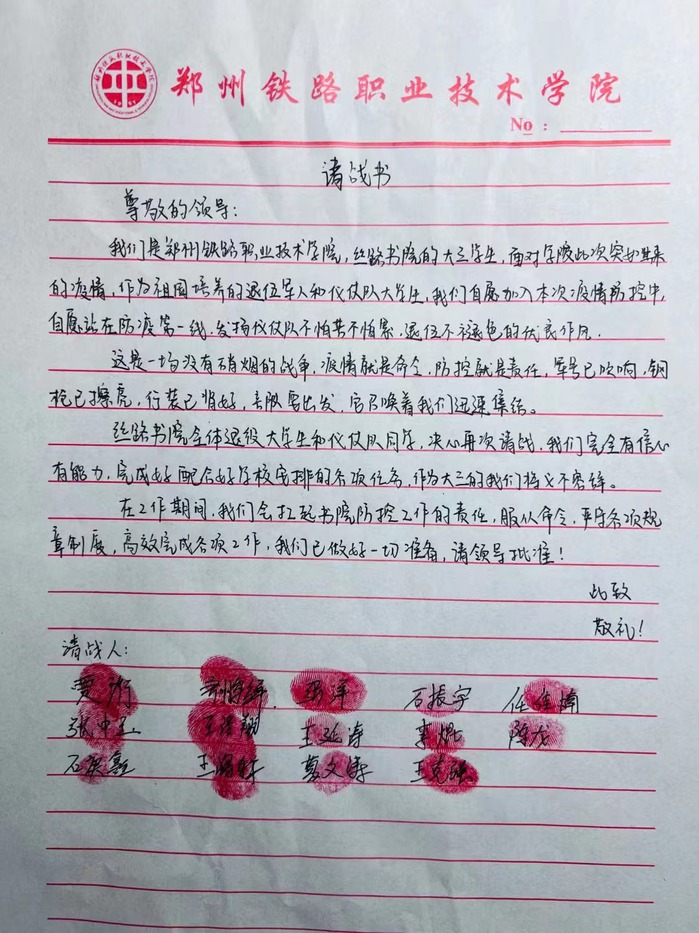 郑州铁路职业技术学院
No：
请战书
尊敬的领导：
我们是郑州铁路职业技术学院，丝路书院的大三学生，面对学院此次突如其来
的疫情，作为祖国培养的退伍军人和仪仗队大学生，我们自愿加入本次疫情防控中，
自愿站在防疫第一线，发扬仪仗队不怕苦不怕累、退伍不褪色的优良作风。
这是一场没有硝烟的战争，疫情就是命令，防控就是责任，军号已吹响，钢
枪已擦亮，行装已背好，部队要出发，它召唤着我们迅速集结。
丝路书院全体退役大学生和仪仗队同学，决心再次请战，我们完全有信心
有能力，完成好配合好学校安排的各项任务，作为大三的我们将义不容辞。
在工作期间，我们会扛起书院防控工作的责任，服从命令，严守各项规
章制度，高效完成各项工作，我们已做好一切准备，请领导批准！
此致
敬礼！
请战人：
石振宇 任佳楠
张中 王延涛 李 陈龙
石 王 文 王克